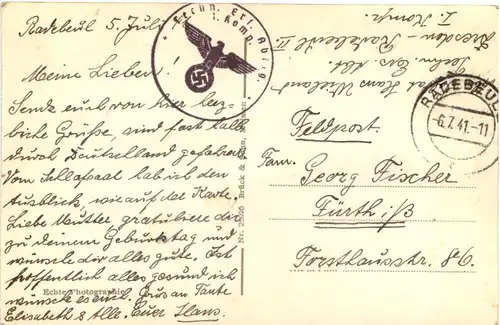 Radebeul 5. Juli
Meine Lieben!
Sende euch von hier herz-
liche Grüße, sind fast halb
durch Deutschland gefahren
Vom Schlafsaal hab ich den
Ausblick, wie auf der Karte.
Liebe Mutter gratuliere dir
zu deinem Geburtstag und
wünsche dir alles gute. Ist
hoffentlich alles gesund ich
wünsche es euch. Grus an Tante
Elisabeth & Alle. Euer Hans.
Echte Photographie
Techn. Ers. Abtlg.
1. Komp.
Nr. 2525 Brück & Sohn, Meissen
Hans Wieland
Techn. Ers. Abt.
Dresden - Radebeul II.
I. Komp.
RADEBEUL
-6.7.41.-11
Feldpost.
Fam.
Georg Fischer
Fürth i/B
Forsthausstr. 86.